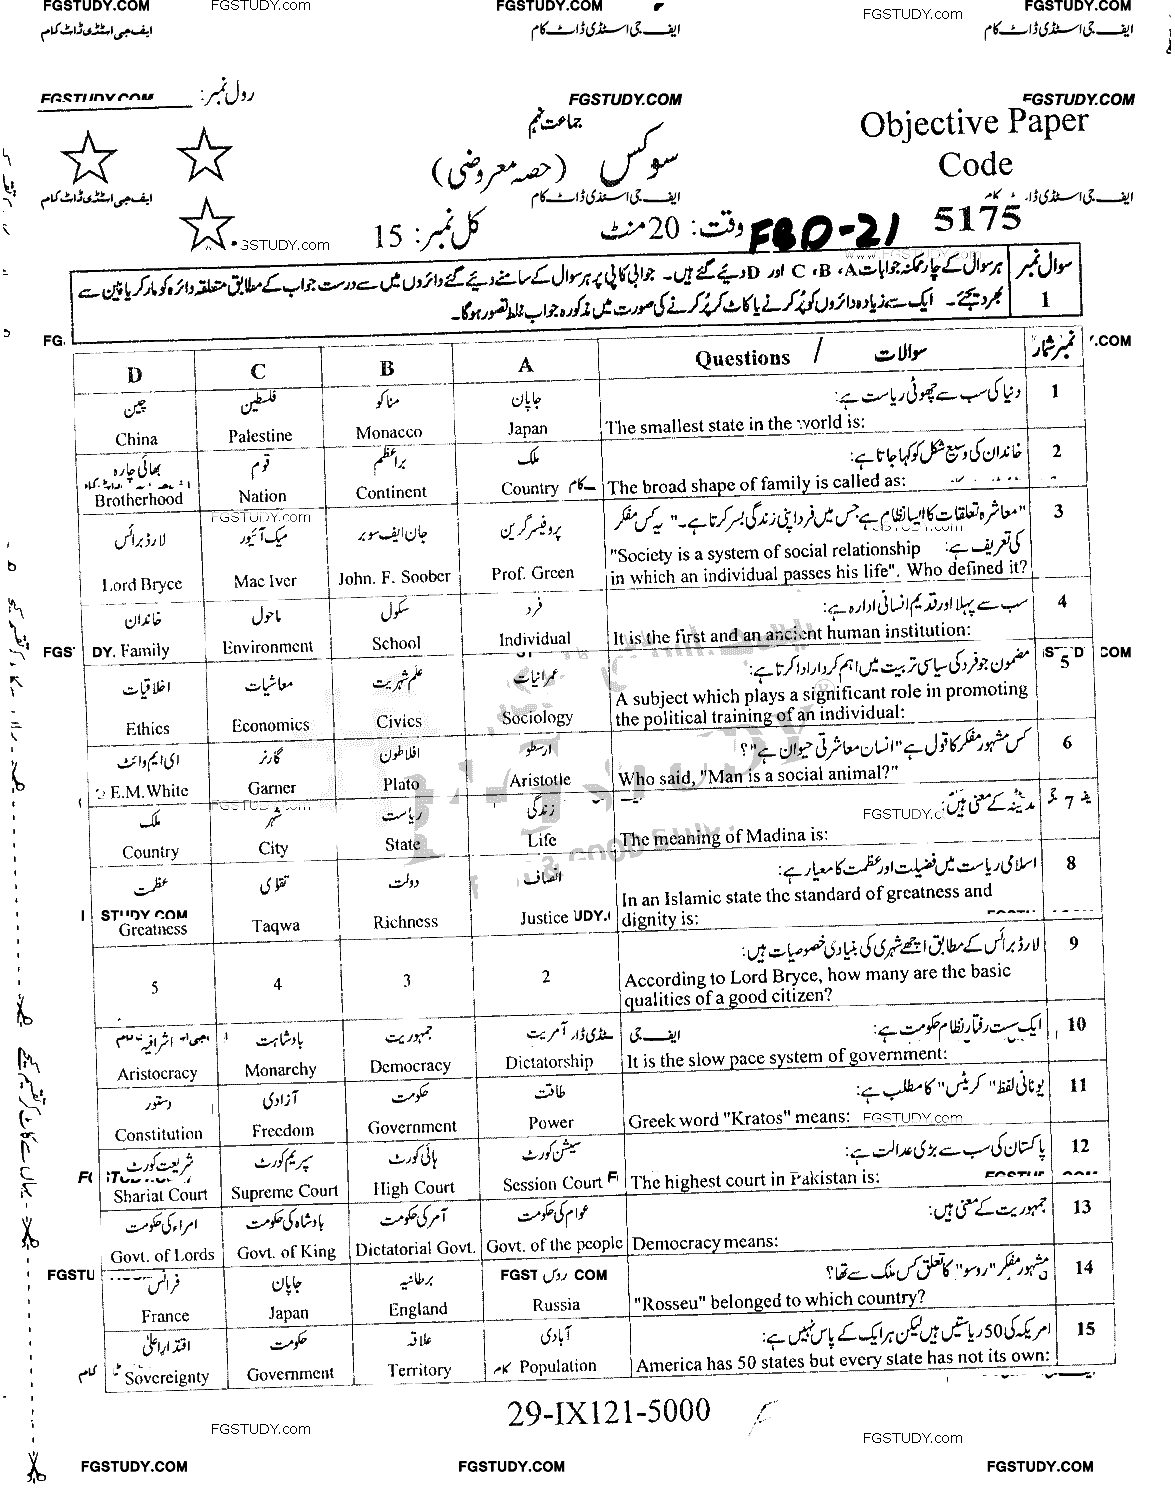 FGSTUDY.COM FGSTUDY.COM FGSTUDY.com FGSTUDY.COM
ایف جی اسٹڈی ڈاٹ کام ایف جی اسٹڈی ڈاٹ کام ایف جی اسٹڈی ڈاٹ کام
FGSTUDY.COM رول نمبر: FGSTUDY.COM FGSTUDY.COM
جماعت نہم
Objective Paper
سوکس (حصہ معروضی)
Code
ایف جی اسٹڈی ڈاٹ کام ایف جی اسٹڈی ڈاٹ کام
5175
FBD-21
وقت: 20 منٹ
کل نمبر: 15
GSTUDY.com
سوال نمبر 1
ہر سوال کے چار ممکنہ جوابات A، B، C اور D دیے گئے ہیں۔ جوابی کاپی پر ہر سوال کے سامنے دیے گئے دائروں میں سے درست جواب کے مطابق متعلقہ دائرہ کو مارکر یا پین سے
بھر دیجئے۔ ایک سے زیادہ دائروں کو پُر کرنے یا کاٹ کر پُر کرنے کی صورت میں مذکورہ جواب غلط تصور ہوگا۔
D C B A Questions / سوالات نمبر شمار
چین فلسطین مناکو جاپان دنیا کی سب سے چھوٹی ریاست ہے: 1
China Palestine Monacco Japan The smallest state in the world is:
بھائی چارہ قوم براعظم ملک خاندان کی وسیع شکل کو کہا جاتا ہے: 2
Brotherhood Nation Continent Country The broad shape of family is called as:
FGSTUDY.com
لارڈ برائس میک آئیور جان ایف سوبر پروفیسر گرین "معاشرہ تعلقات کا ایسا نظام ہے جس میں فرد اپنی زندگی بسر کرتا ہے۔" یہ کس مفکر 3
کی تعریف ہے:
Lord Bryce Mac Iver John. F. Soober Prof. Green "Society is a system of social relationship
in which an individual passes his life". Who defined it?
خاندان ماحول سکول فرد سب سے پہلا اور قدیم انسانی ادارہ ہے: 4
Family Environment School Individual It is the first and an ancient human institution:
اخلاقیات معاشیات علم شہریت عمرانیات مضمون جو فرد کی سیاسی تربیت میں اہم کردار ادا کرتا ہے: 5
Ethics Economics Civics Sociology A subject which plays a significant role in promoting
the political training of an individual:
ای ایم وائٹ گارنر افلاطون ارسطو کس مشہور مفکر کا قول ہے "انسان معاشرتی حیوان ہے"؟ 6
E.M.White Garner Plato Aristotle Who said, "Man is a social animal?"
ملک شہر ریاست زندگی مدینہ کے معنی ہیں: 7
Country City State Life The meaning of Madina is:
عظمت تقویٰ دولت انصاف اسلامی ریاست میں فضیلت اور عظمت کا معیار ہے: 8
Greatness Taqwa Richness Justice In an Islamic state the standard of greatness and
dignity is:
لارڈ برائس کے مطابق اچھے شہری کی بنیادی خصوصیات ہیں: 9
5 4 3 2 According to Lord Bryce, how many are the basic
qualities of a good citizen?
اشرافیہ بادشاہت جمہوریت آمریت ایک سست رفتار نظام حکومت ہے: 10
Aristocracy Monarchy Democracy Dictatorship It is the slow pace system of government:
دستور آزادی حکومت طاقت یونانی لفظ "کریٹس" کا مطلب ہے: 11
Constitution Freedom Government Power Greek word "Kratos" means: FGSTUDY.com
شریعت کورٹ سپریم کورٹ ہائی کورٹ سیشن کورٹ پاکستان کی سب سے بڑی عدالت ہے: 12
Shariat Court Supreme Court High Court Session Court The highest court in Pakistan is:
امراء کی حکومت بادشاہ کی حکومت آمر کی حکومت عوام کی حکومت جمہوریت کے معنی ہیں: 13
Govt. of Lords Govt. of King Dictatorial Govt. Govt. of the people Democracy means:
فرانس جاپان برطانیہ روس مشہور مفکر "روسو" کا تعلق کس ملک سے تھا؟ 14
France Japan England Russia "Rosseu" belonged to which country?
اقتدار اعلیٰ حکومت علاقہ آبادی امریکہ کی 50 ریاستیں ہیں لیکن ہر ایک کے پاس نہیں ہے: 15
Sovereignty Government Territory Population America has 50 states but every state has not its own:
29-IX121-5000
FGSTUDY.com FGSTUDY.com
FGSTUDY.COM FGSTUDY.COM FGSTUDY.COM